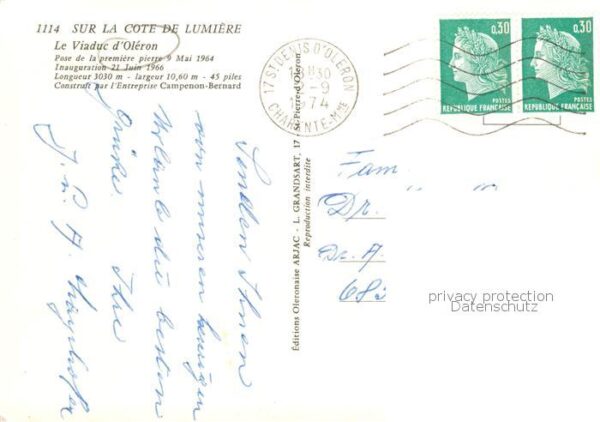 1114 SUR LA COTE DE LUMIÈRE
Le Viaduc d'Oléron
Pose de la première pierre 9 Mai 1964
Inauguration 21 Juin 1966
Longueur 3030 m - largeur 10,60 m - 45 piles
Construit par l'Entreprise Campenon-Bernard
17 ST DENIS D'OLERON
CHARENTE-Mme
0,30
POSTES
REPUBLIQUE FRANÇAISE
0,30
POSTES
REPUBLIQUE FRANÇAISE
Editions Oleronaise ARJAC - L. GRANDSART, 17 - St-Pierre-d'Oléron
Reproduction interdite
Senden Ihnen
von unserem heurigen
Urlaub die besten
Grüße. Ihre
Fam.
Dr.
Dr. A.
privacy protection
Datenschutz